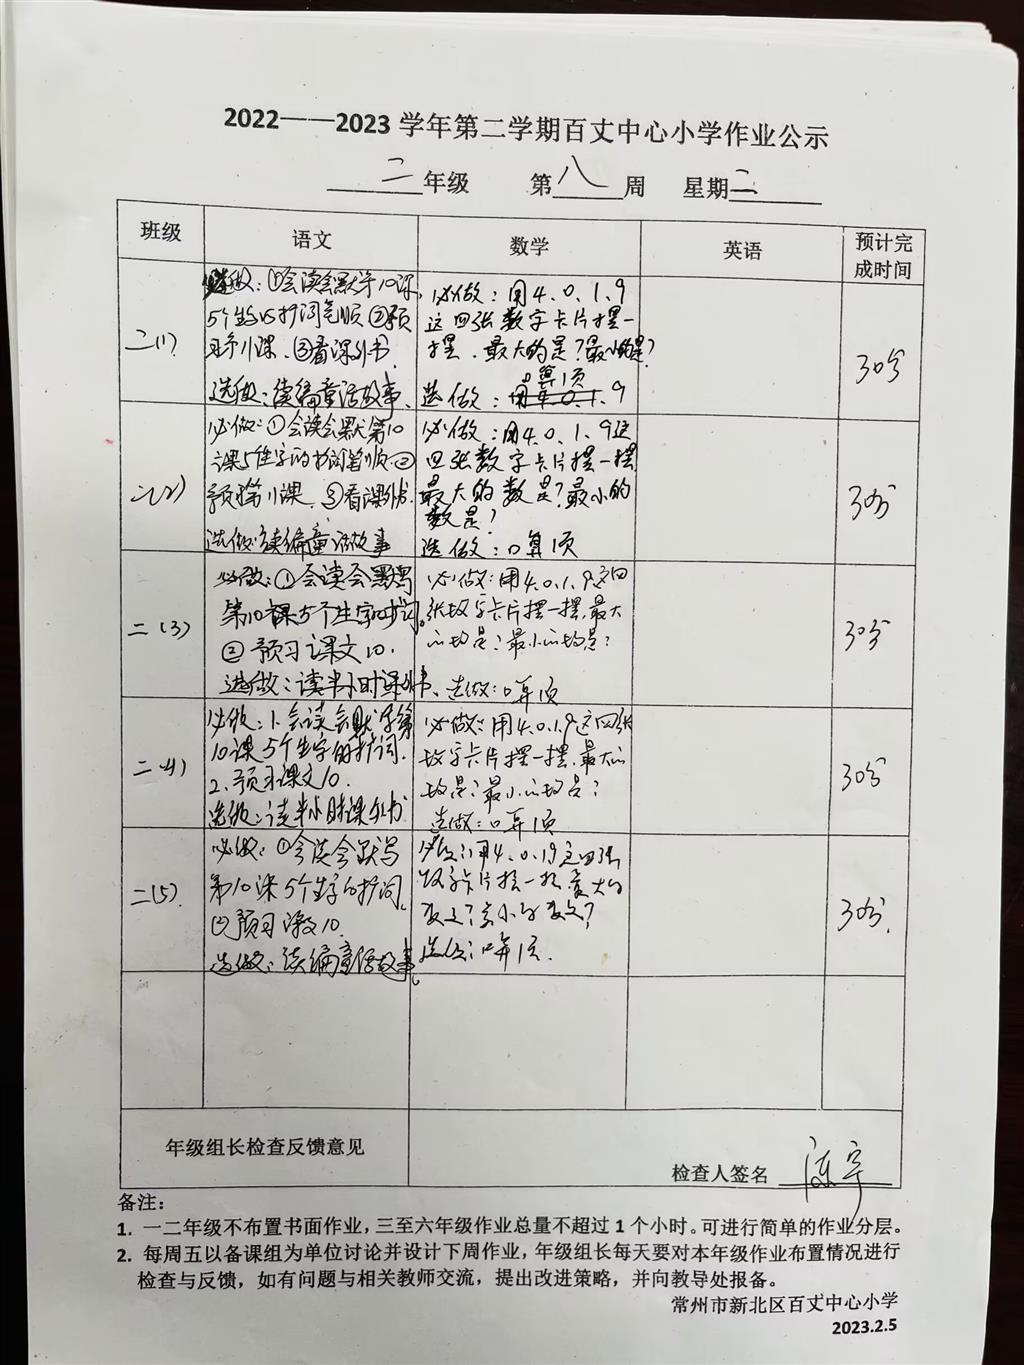 2022——2023 学年第二学期百丈中心小学作业公示
二年级 第八周 星期二
班级 语文 数学 英语 预计完成时间
二(1)
必做：①会读会默写10课
5个生字的扩词笔顺②预
习第11课.③看课外书.
选做：续编童话故事、
必做：用4.0.1.9
这四张数字卡片摆一
摆.最大的是?最小的是?
选做：口算1页
30分
二(2)
必做:①会读会默第10
课5个生字的扩词笔顺.②
预习第11课.③看课外书.
选做:续编童话故事
必做:用4.0.1.9这
四张数字卡片摆一摆
最大的数是?最小的
数是?
选做:口算1页
30分
二(3)
必做:①会读会默写
第10课5个生字的扩词。
②预习课文10.
选做：读半小时课外书、
必做:用4.0.1.9这四
张数字卡片摆一摆.最大
的数是?最小的数是?
选做:口算1页
30分
二(4)
必做:1.会读会默写第
10课5个生字的扩词.
2.预习课文10.
选做:读半小时课外书
必做:用4.0.1.9这四张
数字卡片摆一摆.最大的
数是?最小的数是?
选做:口算1页
30分
二(5).
必做：①会读会默写
第10课5个生字的扩词。
②预习课文10.
选做：续编童话故事。
必做:用4.0.1.9这四张
数字卡片摆一摆.最大的
数是?最小的数是?
选做:口算1页.
30分.
年级组长检查反馈意见
检查人签名 陈宇
备注：
1. 一二年级不布置书面作业，三至六年级作业总量不超过 1 个小时。可进行简单的作业分层。
2. 每周五以备课组为单位讨论并设计下周作业，年级组长每天要对本年级作业布置情况进行
检查与反馈，如有问题与相关教师交流，提出改进策略，并向教导处报备。
常州市新北区百丈中心小学
2023.2.5